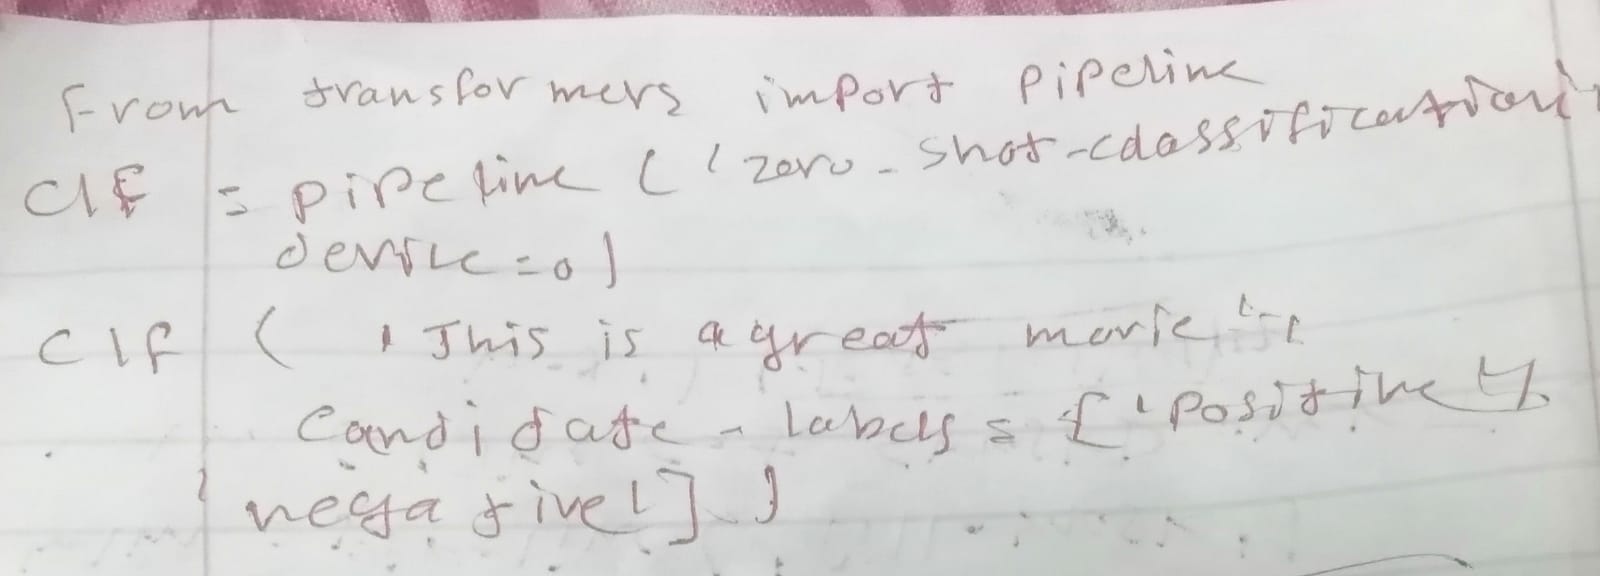 From transformers import pipeline
Clf = pipeline ('zero-shot-classification',
device=0)
Clf ('This is a great movie',
Candidate-labels = ['Positive',
'negative'])